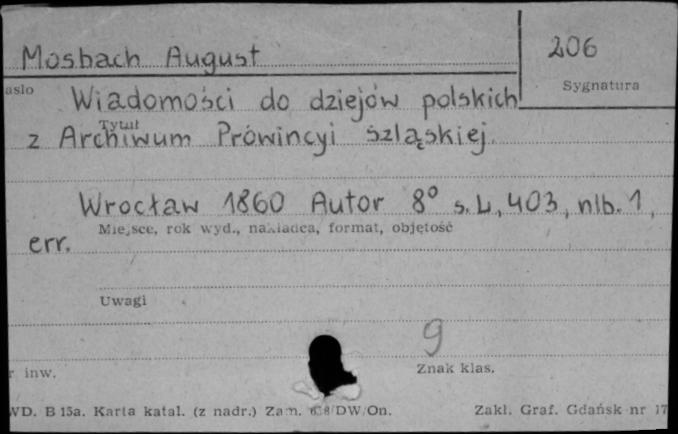 Mosbach August
206
asło
Sygnatura
Wiadomości do dziejów polskich
Tytuł
z Archiwum Prówincyi szląskiej.
Wrocław 1860 Autor 8° s. L, 403, nlb. 1,
Miejsce, rok wyd., nakładca, format, objętość
err.
Uwagi
9
r inw.
Znak klas.
WD. B 15a. Karta katal. (z nadr.) Zam. DW/On.
Zakł. Graf. Gdańsk nr 17